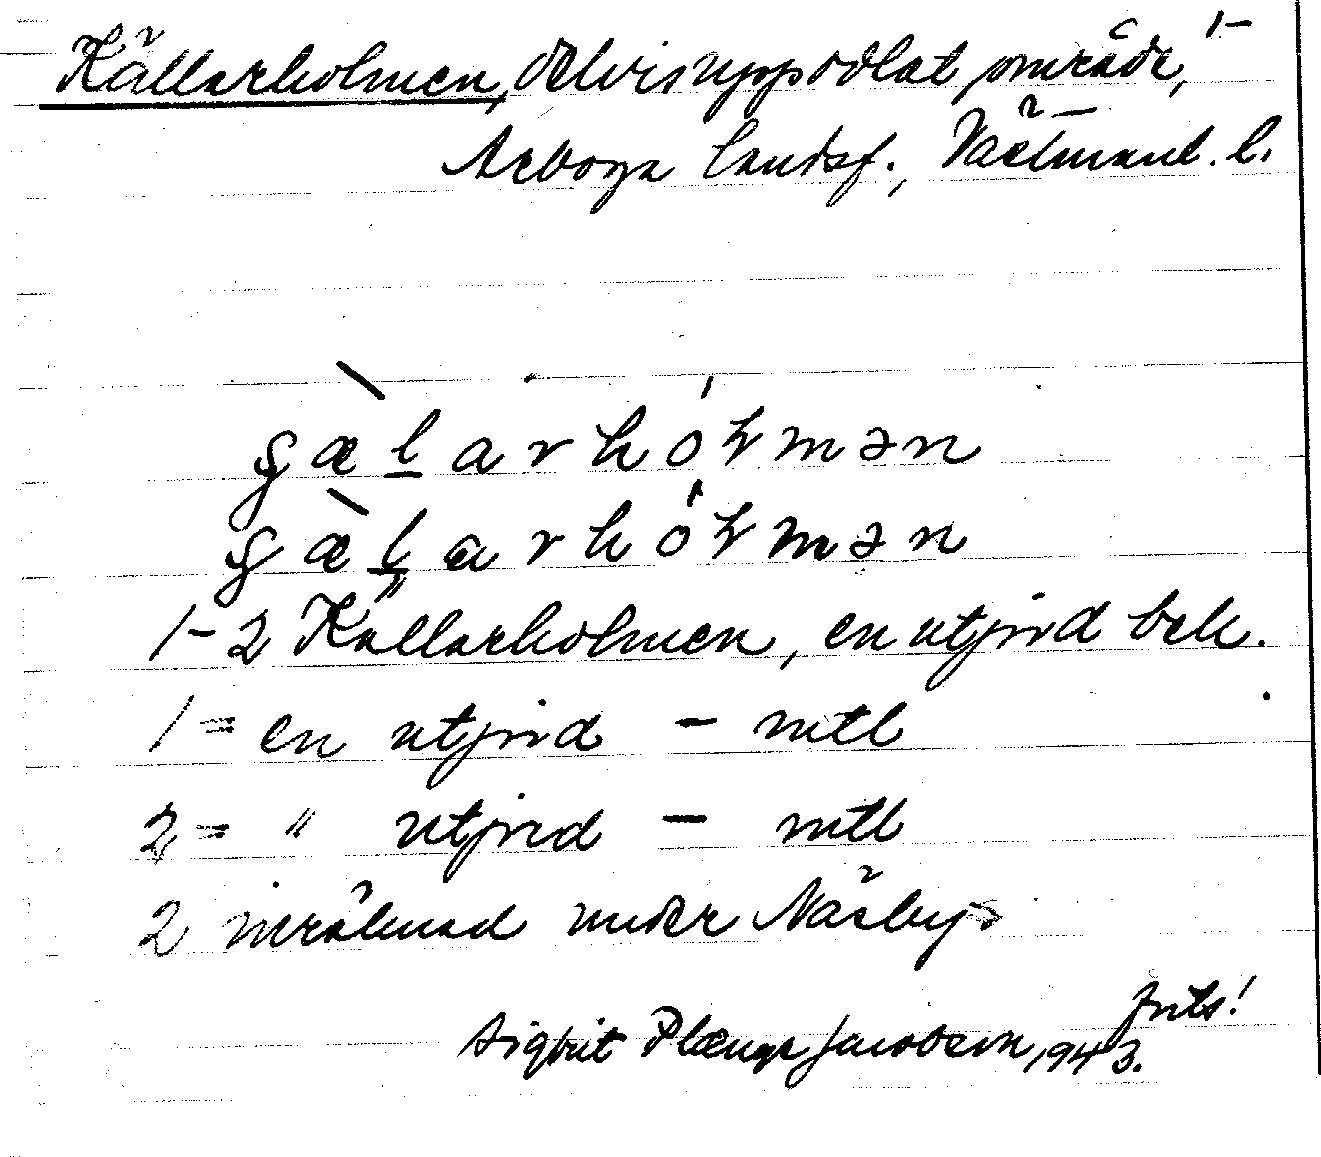 Källarholmen, delvis uppodlat område, 1-
Arboga landsf., Västmanl. l.
gæ̀larhóɫmən
gæ̀larhóɫmən
1-2 Källarholmen, en utjord bel.
1 = en utjord - mtl
2 = " utjord - mtl
2 inräknad under Näsby
Forts!
Sigbrit Plænge Jacobson, 1943.